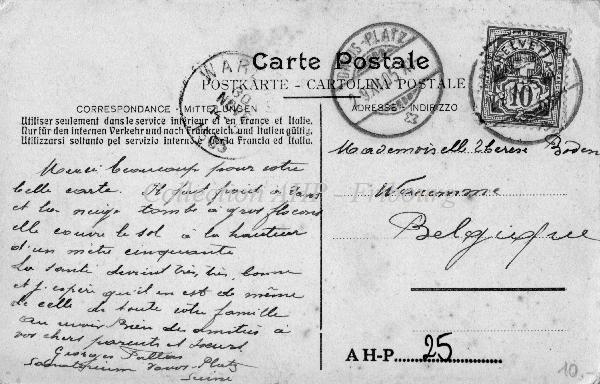 Carte Postale
POSTKARTE - CARTOLINA POSTALE
CORRESPONDANCE - MITTEILUNGEN
ADRESSE - INDIRIZZO
Utiliser seulement dans le service intérieur et en France et Italie.
Nur für den internen Verkehr und nach Frankreich und Italien gültig.
Utilizzarsi soltanto pel servizio interno e per la Francia ed Italia.
HELVETIA
10
S-PLATZ
WAR
Merci beaucoup pour votre
belle carte. Il fait froid à Davos
et la neige tombe à gros flocons
elle couvre le sol à la hauteur
d'un mètre cinquante
La santé devient très, très bonne
et j'espère qu'il en est de même
de celle de toute votre famille
Au revoir Bien des amitiés à
vos chers parents et soeurs
Georges
Sanatorium Davos-Platz
Suisse
Mademoiselle Thérèse
Waremme
Belgique
A H-P. 25
10.